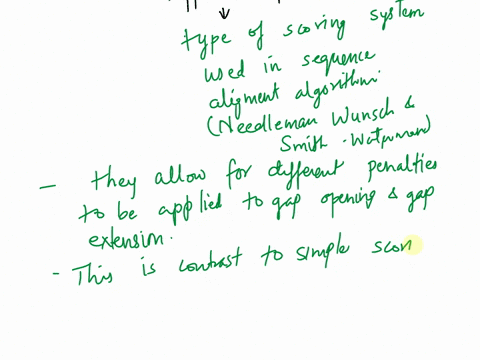 type of scoring system
used in sequence
aligment algorithm.
(Needleman Wunsch &
Smith-Waterman)
- they allow for different penalties
to be applied to gap opening & gap
extension.
- This is contrast to simple scon